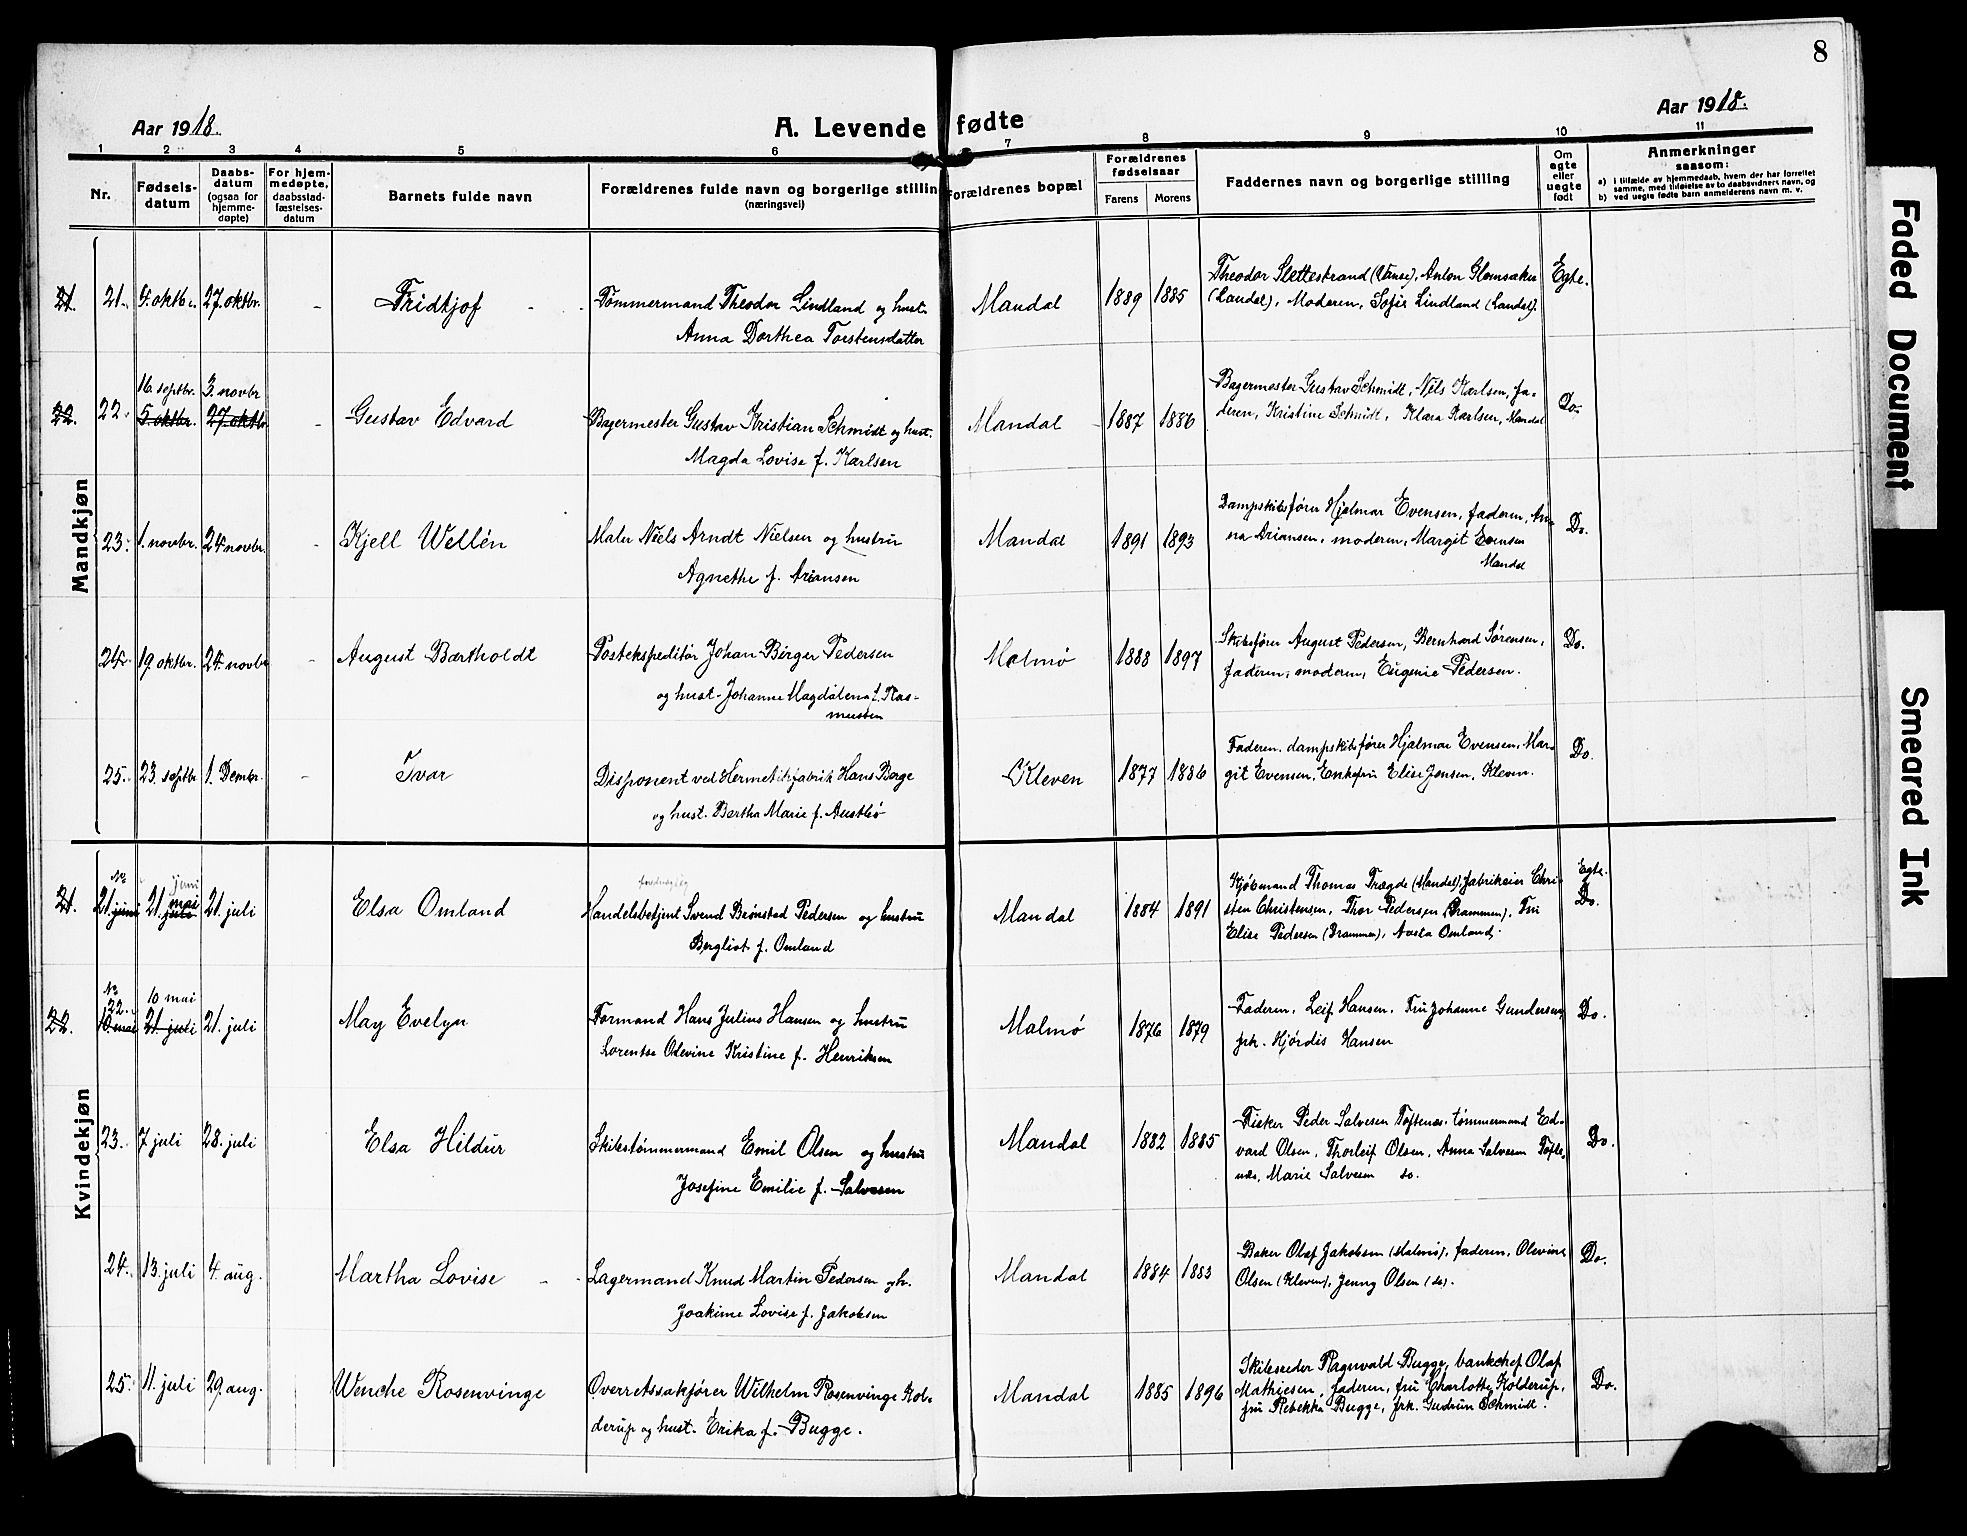 8
Aar 1918.
A. Levende fødte
Aar 1918.
1 2 3 4 5 6 7 8 9 10 11
Nr.
Fødsels-
datum
Daabs-
datum
(ogsaa for
hjemme-
døpte)
For hjem-
medøpte,
daabsstad-
fæstelses-
datum
Barnets fulde navn
Forældrenes fulde navn og borgerlige stilling
(næringsvei)
Forældrenes bopæl
Forældrenes
fødselsaar
Farens Morens
Faddernes navn og borgerlige stilling
Om
egte
eller
uegte
født
Anmerkninger
saasom:
a) i tilfælde av hjemmedaab, hvem der har forrettet
samme, med tilføielse av to daabsvidners navn, og
b) ved uegte fødte barn anmelderens navn m. v.
Mandkjøn
21. 21. 9. oktbr. 27. oktbr. - Fridtjof - -
Tømmermand Theodor Lindland og hust.
Anna Dorthea Torstensdatter
Mandal 1889 1885
Theodor Slettestrand (Vanse), Anton Glomsaker
(Laudal), Moderen, Sofie Lindland (Laudal).
Egte.
22. 22. 16. septbr. 3. novbr
5. oktbr. 27. oktbr - Gustav Edvard
Bagermester Gustav Kristian Schmidt og hust.
Magda Lovise f. Karlsen
Mandal 1887 1886
Bagermester Gustav Schmidt, Nils Karlsen, fa-
deren, Kristine Schmidt, Klara Karlsen, Mandal
Do.
23. 1. novbr. 24. novbr. - Kjell Wellén
Maler Niels Arndt Nielsen og hustru
Agnethe f. Ariansen
Mandal 1891 1893
Dampskibsfører Hjalmar Evensen, faderen, An-
na Ariansen, moderen, Margit Evensen
Mandal
Do.
24. 19 oktbr. 24. novbr - August Bartholdt
Postekspeditør Johan Birger Pedersen
og hust. Johanne Magdalena f. Ras-
mussen
Malmø 1888 1897
Skibsfører August Pedersen, Bernhard Sørensen,
faderen, moderen, Eugenie Pedersen.
Do.
25. 23. septbr 1. Dembr. - Ivar
Disponent ved Hermetikfabrik Hans Berge
og hust. Bertha Marie f. Austbø
Kleven 1877 1886
Faderen, dampskibsfører Hjalmar Evensen, Mar-
git Evensen, Enkefru Elise Jensen, Kleven.
Do.
Kvindekjøn
21. No
21. juni juni
21. mai
juli 21. juli Elsa Omland
Handelsbetjent Svend Brønstad Pedersen og hustru
Bergliot f. Omland
Mandal 1884 1891
Kjøbmand Thomas Trægde (Mandal), fabrikeier Chri-
sten Christensen, Thor Pedersen (Drammen), Fru
Elise Pedersen (Drammen), Aasta Omland.
Egte.
Do.
22. No
22. 10 mai
10 mai 21 juli 21. juli May Evelyn
Formand Hans Julius Hansen og hustru
Lorentse Olevine Kristine f. Henriksen
Malmø 1876 1879
Faderen, Leif Hansen, Fru Johanne Gundersen,
frk. Hjørdis Hansen
Do.
23. 7 juli 28. juli Elsa Hildur
Skibstømmermand Emil Olsen og hustru
Josefine Emilie f. Salvesen
Mandal 1882 1885
Fisker Peder Salvesen Toftenes, tømmermand Ed-
vard Olsen, Thorleif Olsen, Anna Salvesen Tofte-
nes, Marie Salvesen do.
Do.
24. 13. juli 4. aug. Martha Lovise - -
Lagermand Knud Martin Pedersen og h.
Joakime Lovise f. Jakobsen
Mandal 1884 1883
Baker Olaf Jakobsen (Malmø), faderen, Olevine
Olsen (Kleven), Jenny Olsen (do).
Do.
25. 11. juli 29. aug. Wenche Rosenvinge
Overretssakfører Wilhelm Rosenvinge Kol-
derup og hust. Erika f. Bugge.
Mandal 1885 1896
Skibsreder Ragnvald Bugge, bankchef Olaf
Mathiesen, faderen, fru Charlotte Kolderup,
fru Rebekka Bugge, frk. Gudrun Schmidt.
Do.
Faded Document
Smeared Ink